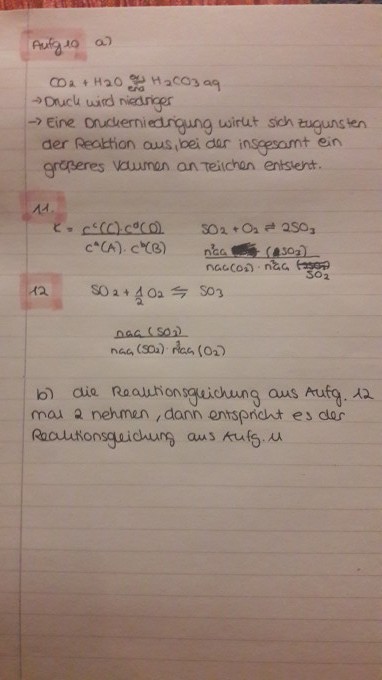 Aufg 10 a)
CO2 + H2O ⇌ H2CO3 aq
→ Druck wird niedriger
→ Eine Druckerniedrigung wirkt sich zugunsten
der Reaktion aus, bei der insgesamt ein
größeres Volumen an Teilchen entsteht.
11.
K = c^c(C) · c^d(D) / c^a(A) · c^b(B)
SO2 + O2 ⇌ 2SO3
(SO2)
(O2) · SO2
12 SO2 + 1/2 O2 ⇋ SO3
(SO2) (O2)
b) die Reaktionsgleichung aus Aufg. 12
mal 2 nehmen, dann entspricht es der
Reaktionsgleichung aus Aufg. 11